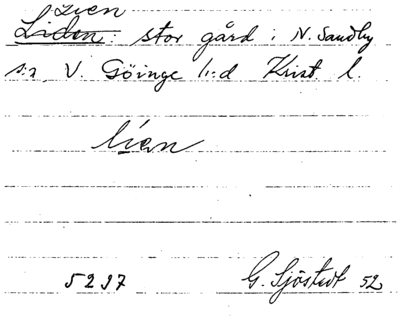 Lien
Liden: stor gård i N. Sandby
s:n V. Göinge h:d Krist. l.
líen
5297 G. Sjöstedt 52